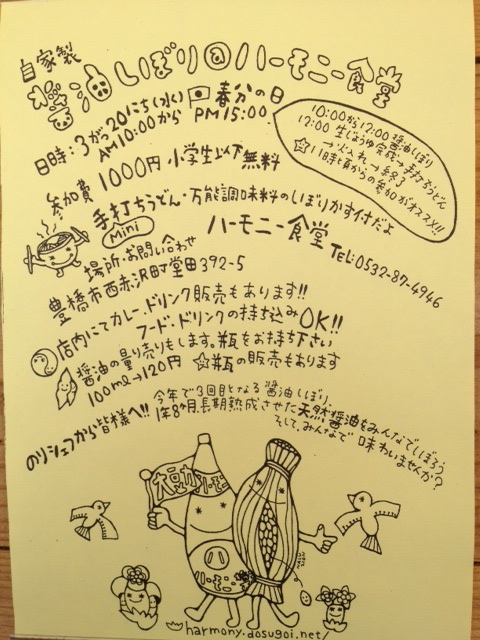 自家製
醤油しぼり@ハーモニー食堂
日時:3がつ20にち(水)春分の日
AM10:00から PM15:00
10:00から12:00 醤油しぼり
12:00 生じょうゆ完成→手打ちうどん
→火入れ→終了
☆11時頃からの参加がオススメ!!
参加費 1000円 小学生以下無料
手打ちうどん・万能調味料のしぼりかす付だよ
Mini
場所・お問い合わせ ハーモニー食堂
豊橋市西赤沢町堂田392-5 Tel:0532-87-4946
店内にてカレー、ドリンク販売もあります!!
フード・ドリンクの持ち込みOK!!
醤油の量り売りもします。瓶をお持ち下さい
100ml→120円 ☆瓶の販売もあります
のりシェフから皆様へ!!
今年で3回目となる醤油しぼり。
1年8ヶ月長期熟成させた天然醤油をみんなでしぼろう
そして、みんなで味わいませんか?
大豆カ
ハーモニー
ハーモニー
harmony.dosugoi.net/